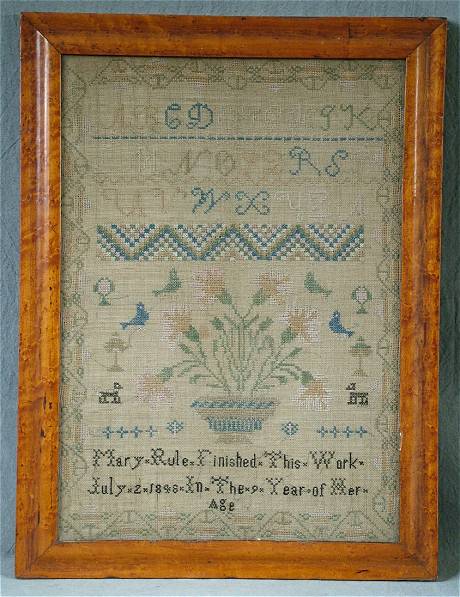 C D I K
N O R S
W X
Mary Rule Finished This Work
July 2 1848 In The 9 Year of Her
Age